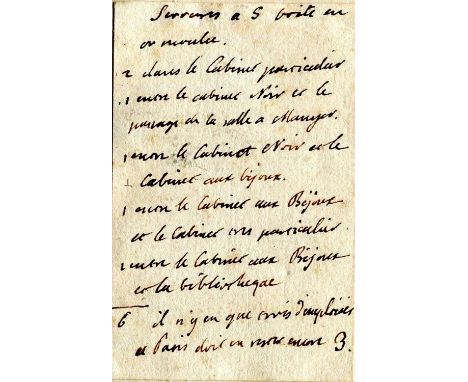 Serrures a S boite en
or moulu.
2 dans le Cabinet particulier
1 entre le cabinet Noir et le
passage de la salle a Manger.
1 entre le Cabinet Noir et le
Cabinet aux bijoux.
1 entre le Cabinet aux Bijoux
et le Cabinet tres particulier.
1 entre le Cabinet aux Bijoux
et la bibliotheque
6 il n'y en que trois d'employées
et Paris doit en encore 3.